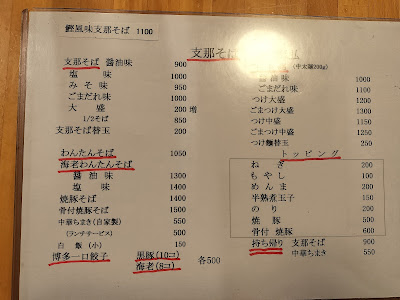 鰹風味支那そば 1100
支那そば 醤油味 900
塩味 1000
みそ味 900
ごまだれ味 1000
大盛 200 増
1/2そば 850
支那そば替玉 200
わんたんそば 1050
海老わんたんそば
醤油味 1300
塩味 1400
焼豚そば 1400
骨付焼豚そば 1500
中華ちまき(自家製) 550
(ランチサービス) 500
白飯(小) 150
博多一口餃子 黒豚(10コ) 各500
海老(8コ)
支那そば
(中太麺200g)
味
ごまだれ味 1100
つけ大盛 1200
ごまつけ大盛 1300
つけ中盛 1150
ごまつけ中盛 1250
つけ麺替玉 250
トッピング
ねぎ 200
もやし 100
めんま 200
半熟煮玉子 150
のり 200
焼豚 500
骨付焼豚 600
持ち帰り 支那そば 900
中華ちまき 550